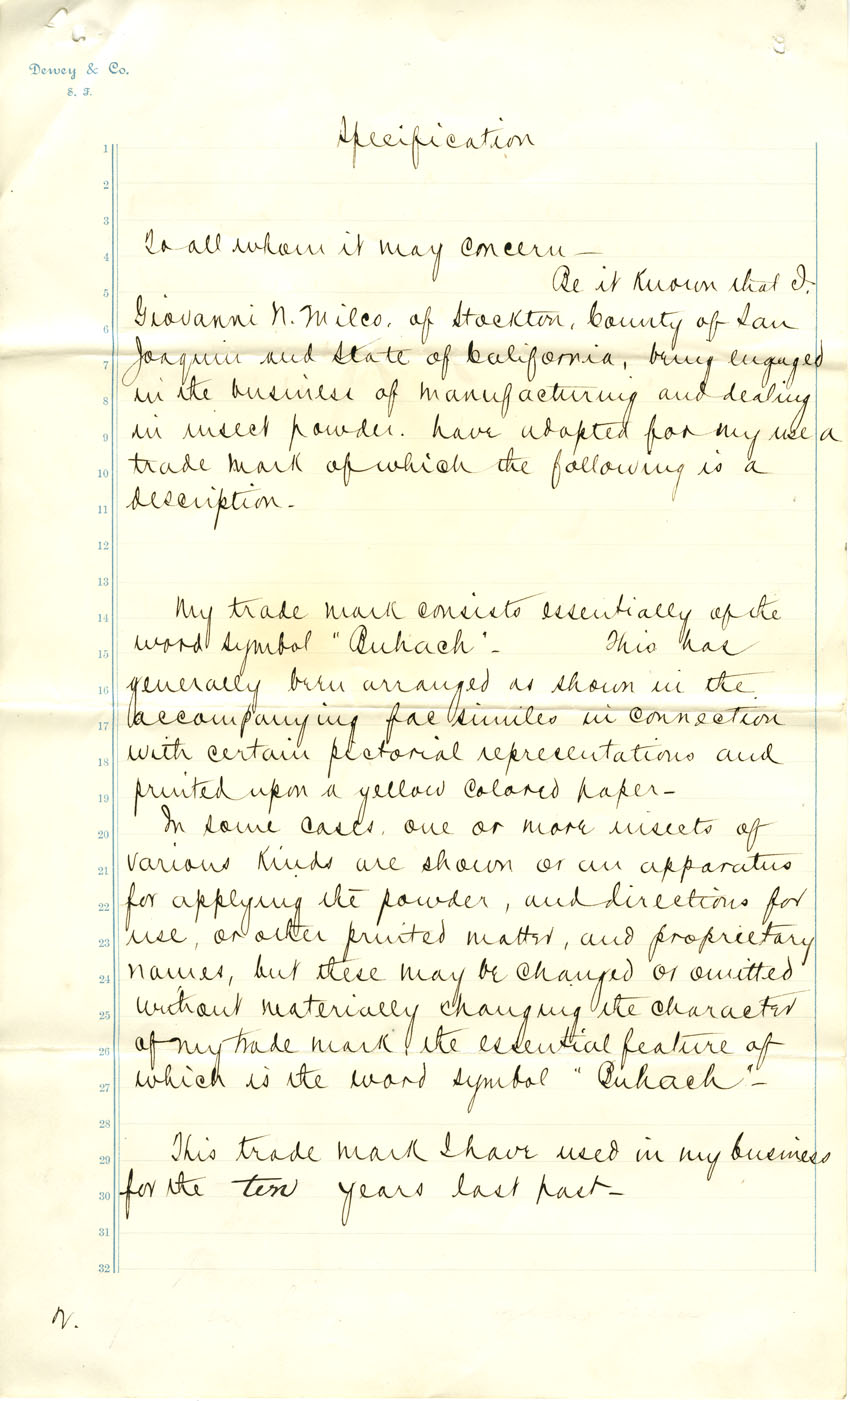 Dewey & Co.
S. F.
Specification
1
2
3
4 To all whom it may concern —
5 Be it Known that I.
6 Giovanni N. Milco. of Stockton, County of San
7 Joaquin and State of California, being engaged
8 in the business of manufacturing and dealing
9 in insect powder. have adopted for my use a
10 trade mark of which the following is a
11 description -
12
13
14 My trade mark consists essentially of the
15 word symbol "Buhach" - This has
16 generally been arranged as shown in the
17 accompanying fac similes in connection
18 with certain pictorial representations and
19 printed upon a yellow colored paper -
20 In some cases, one or more insects of
21 various kinds are shown or an apparatus
22 for applying the powder, and directions for
23 use, or other printed matter, and proprietary
24 names, but these may be changed or omitted
25 without materially changing the character
26 of my trade mark, the essential feature of
27 which is the word symbol "Buhach" -
28
29 This trade mark I have used in my business
30 for the ten years last past -
31
32